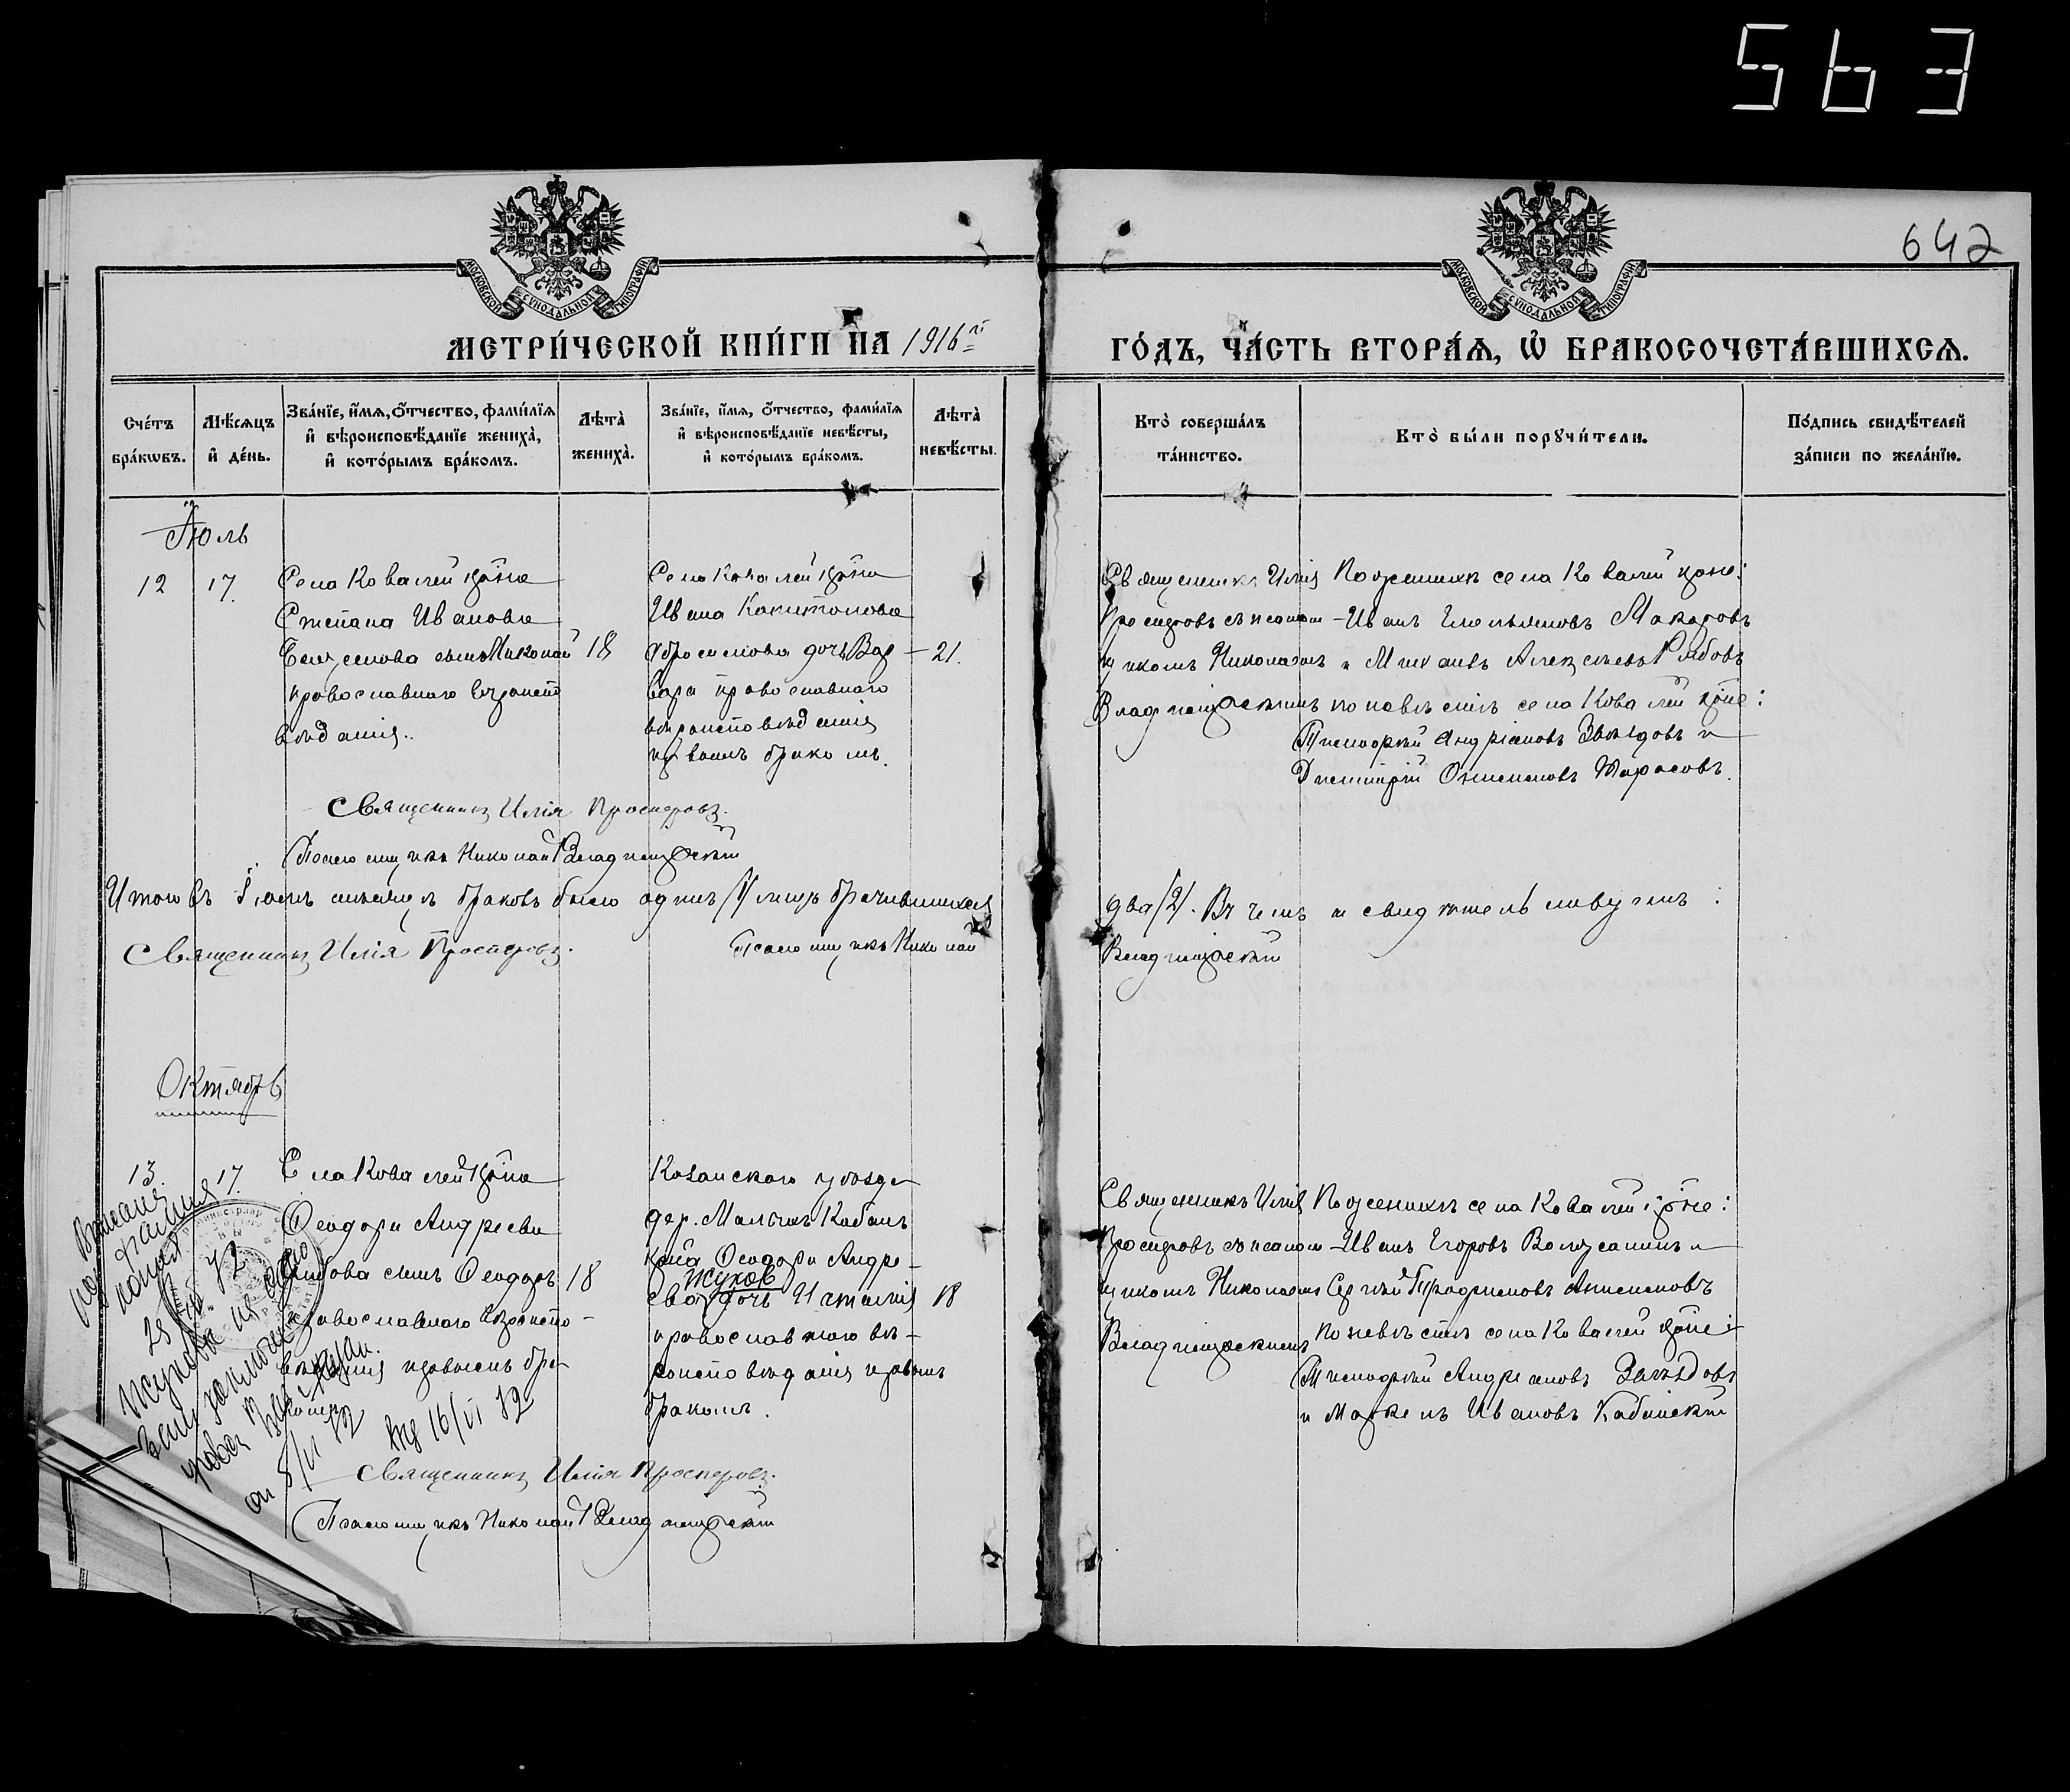 563
642
МОСКОВСКОЙ СѴНОДАЛЬНОЙ ТИПОГРАФІИ
МОСКОВСКОЙ СѴНОДАЛЬНОЙ ТИПОГРАФІИ
МЕТРИ́ЧЕСКОЙ КНИ́ГИ НА 1916й
ГО́ДЪ, ЧА́СТЬ ВТОРА́Ѧ, Ѽ БРАКОСОЧЕТА́ВШИХСѦ.
Сче́тъ бра́кѡвъ.
Мѣ́сѧцъ и҆ де́нь.
Зва́нїе, и҆́мѧ, ѻ҆́тчество, фами́лїѧ
и҆ вѣроисповѣ́данїе жениха̀,
и҆ кото́рымъ бра́комъ.
Лѣта̀ жениха̀.
Зва́нїе, и҆́мѧ, ѻ҆́тчество, фами́лїѧ
и҆ вѣроисповѣ́данїе невѣ́сты,
и҆ кото́рымъ бра́комъ.
Лѣта̀ невѣ́сты.
Кто̀ соверша́лъ та́инство.
Кто̀ бы́ли порꙋчи́тели.
По́дпись свидѣ́телей за́писи по жела́нїю.
Іюль
12
17.
Села Ковалей кр‑на
Степана Иванова
сынъ Николай
православнаго вѣроиспо
вѣданія..
18
Села Ковалей кр‑на
Ивана Капитонова
дочь Вар‑
вара православнаго
вѣроисповѣданія
первымъ бракомъ.
21.
Священникъ Илія
Просперовъ съ псалом‑
щикомъ Николаемъ
По женихѣ села Ковалей крне:
Иванъ Емельяновъ Макаровъ
и Михаилъ Алексѣевъ Рябовъ
по невѣстѣ села Ковалей крне:
Тимофей Андріановъ Звѣздовъ и
Димитрій Онисимовъ Тарасовъ.
Священникъ Илія Просперовъ.
Псаломщикъ Николай
Итого въ Іюлѣ мѣсяцѣ браковъ было одинъ /1/ лицъ брачившихся
два /2/. Въ чемъ и свидѣтельствуемъ:
Священникъ Илія Просперовъ.
Псаломщикъ Николай
Октябрь
13.
17.
Села Ковалей кр‑на
Ѳеодора Андреева
сынъ Ѳеодоръ
православнаго вѣроиспо‑
вѣданія первымъ бра‑
комъ
18
Казанскаго уѣзда
дер. Малыхъ Кабанъ
кр‑на Ѳеодора Андре‑
Жуков
ева дочь Наталія
православнаго вѣ‑
роисповѣданія первымъ
бракомъ.
18
Священникъ Илія
Просперовъ съ псалом‑
щикомъ Николаемъ
По женихѣ села Ковалей крне:
Иванъ Егоровъ и
Сергѣй Анисимовъ
по невѣстѣ села Ковалей крне:
Тимофей Андріановъ Звѣздовъ
и Маркелъ Ивановъ Кабинскій
Священникъ Илія Просперовъ.
Псаломщикъ Николай
Жукова на осно
16/VI 72